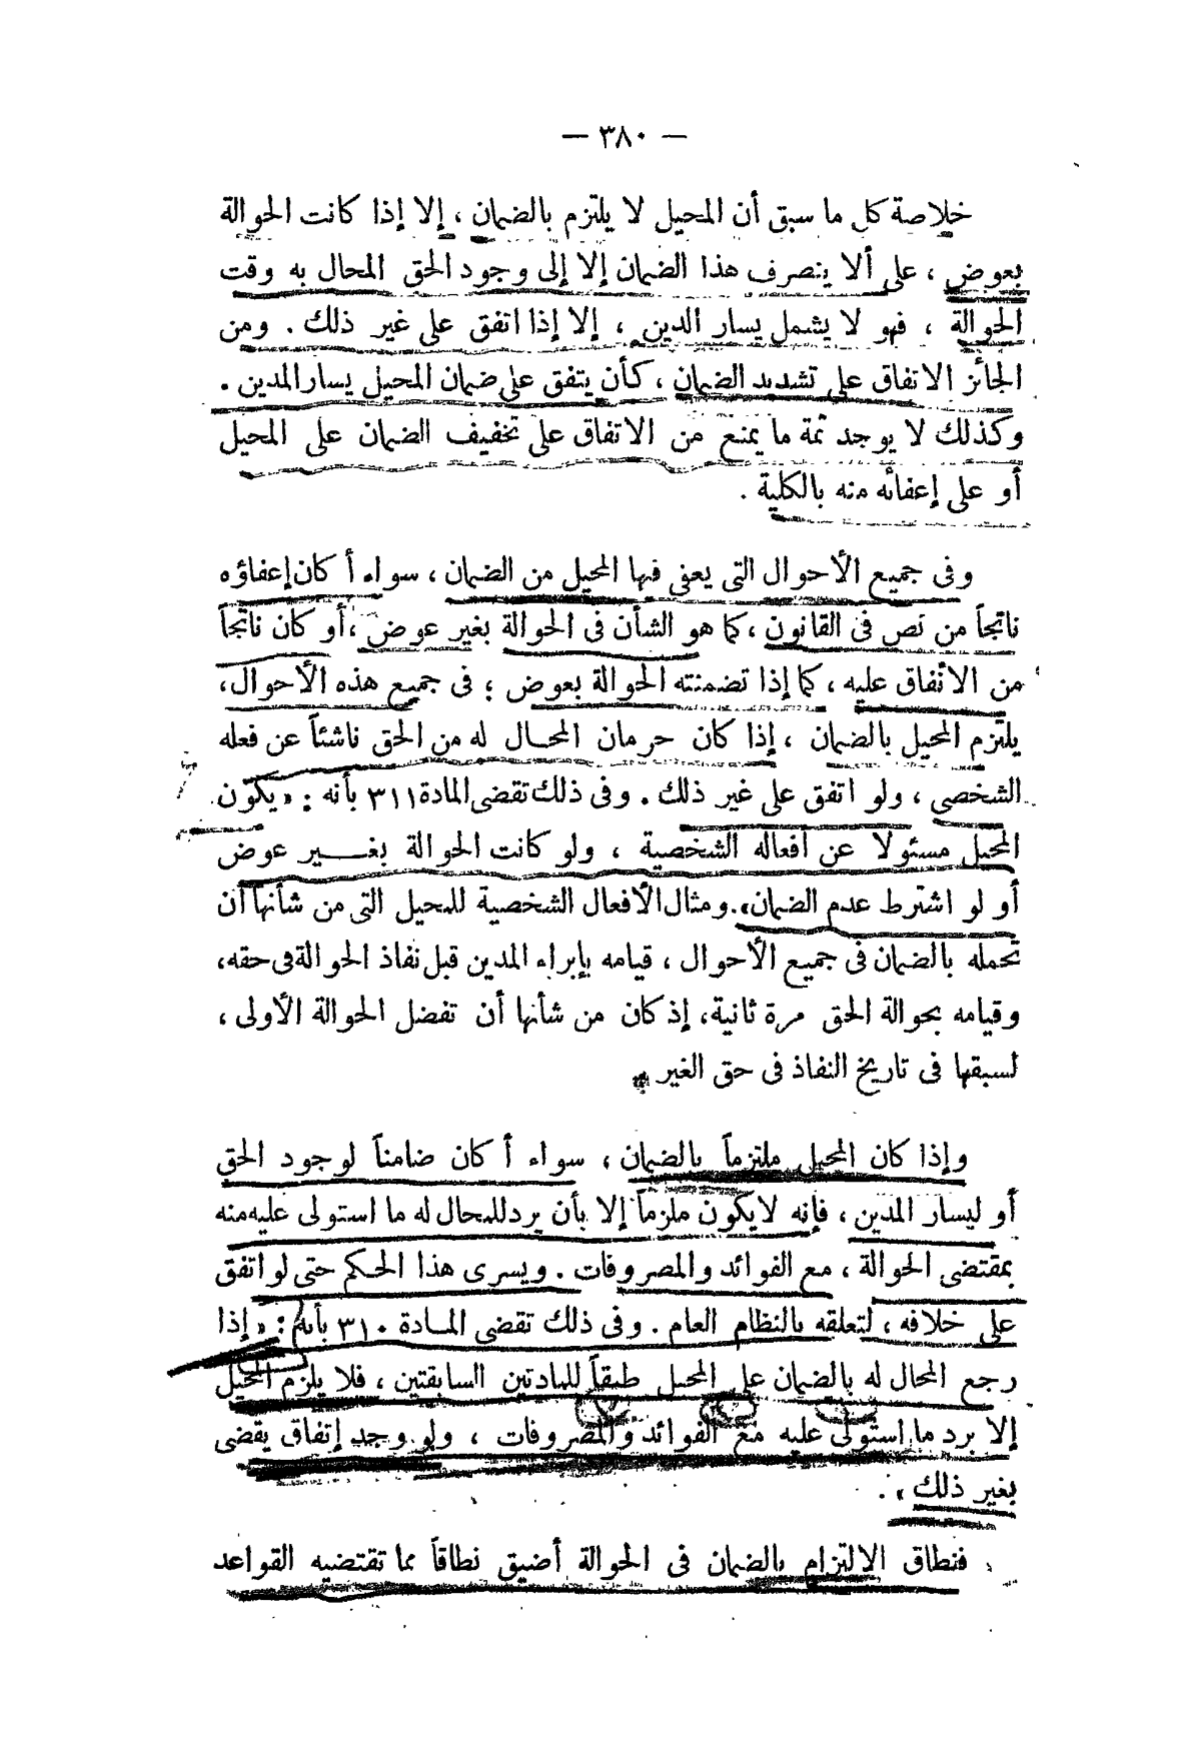 — ٣٨٠ —
خلاصة كل ما سبق أن المحيل لا يلتزم بالضمان ، إلا إذا كانت الحوالة
بعوض ، على ألا ينصرف هذا الضمان إلا إلى وجود الحق المحال به وقت
الحوالة ، فهو لا يشمل يسار المدين ، إلا إذا اتفق على غير ذلك . ومن
الجائز الاتفاق على تشديد الضمان ، كأن يتفق على ضمان المحيل يسار المدين .
وكذلك لا يوجد ثمة ما يمنع من الاتفاق على تخفيف الضمان على المحيل
أو على إعفائه منه بالكلية .
وفى جميع الأحوال التى يعفى فيها المحيل من الضمان ، سواء أكان إعفاؤه
ناتجاً من نص فى القانون ، كما هو الشأن فى الحوالة بغير عوض ، أو كان ناتجاً
من الاتفاق عليه ، كما إذا تضمنته الحوالة بعوض ؛ فى جميع هذه الأحوال ،
يلتزم المحيل بالضمان ، إذا كان حرمان المحال له من الحق ناشئاً عن فعله
الشخصى ، ولو اتفق على غير ذلك . وفى ذلك تقضى المادة ٣١١ بأنه : « يكون
المحيل مسئولا عن أفعاله الشخصية ، ولو كانت الحوالة بغير عوض
أو لو اشترط عدم الضمان » . ومثال الأفعال الشخصية للمحيل التى من شأنها أن
تحمله بالضمان فى جميع الأحوال ، قيامه بإبراء المدين قبل نفاذ الحوالة فى حقه ،
وقيامه بحوالة الحق مرة ثانية ، إذ كان من شأنها أن تفضل الحوالة الأولى ،
لسبقها فى تاريخ النفاذ فى حق الغير .
وإذا كان المحيل ملتزماً بالضمان ، سواء أكان ضامناً لوجود الحق
أو ليسار المدين ، فإنه لا يكون ملزماً إلا بأن يرد للمحال له ما استولى عليه منه
بمقتضى الحوالة ، مع الفوائد والمصروفات . ويسرى هذا الحكم حتى لو اتفق
على خلافه ، لتعلقه بالنظام العام . وفى ذلك تقضى المادة ٣١٠ بأنه : « إذا
رجع المحال له بالضمان على المحيل طبقاً للمادتين السابقتين ، فلا يلزم المحيل
إلا برد ما استولى عليه مع الفوائد والمصروفات ، ولو وجد إتفاق يقضى
بغير ذلك » .
فنطاق الالتزام بالضمان فى الحوالة أضيق نطاقاً مما تقتضيه القواعد